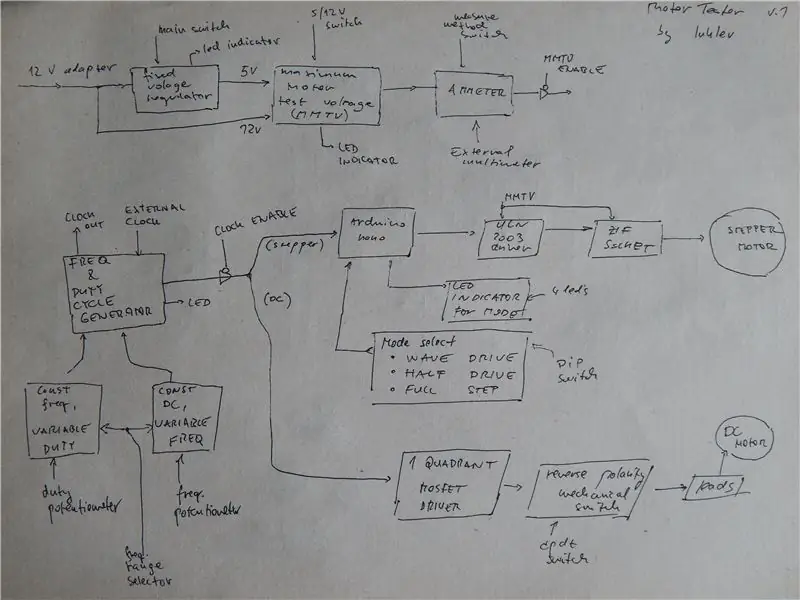 Motor Tester v.1
by luhlev
main switch
led indicator
12 V adapter
fixed
volage
regulator
5V
12V
5/12V
switch
maximum
Motor
test voltage
(MMTV)
LED
INDICATOR
measure
method
switch
AMMETER
External
multimeter
MMTV
ENABLE
CLOCK
OUT
EXTERNAL
CLOCK
FREQ
&
DUTY
CYCLE
GENERATOR
LED
CLOCK ENABLE
(stepper)
(DC)
Arduino
nano
MMTV
ULN
2003
driver
ZIF
SOCKET
STEPPER
MOTOR
LED
INDICATOR
FOR MODE
4 led's
Mode select
• WAVE DRIVE
• HALF DRIVE
• FULL STEP
DIP
switch
const
freq,
VARIABLE
DUTY
CONST
DC,
VARIABLE
FREQ
duty
potentiometer
freq.
potentiometer
freq.
range
selector
1 QUADRANT
MOSFET
DRIVER
reverse polarity
mechanical
switch
dpdt
switch
PADS
DC
MOTOR